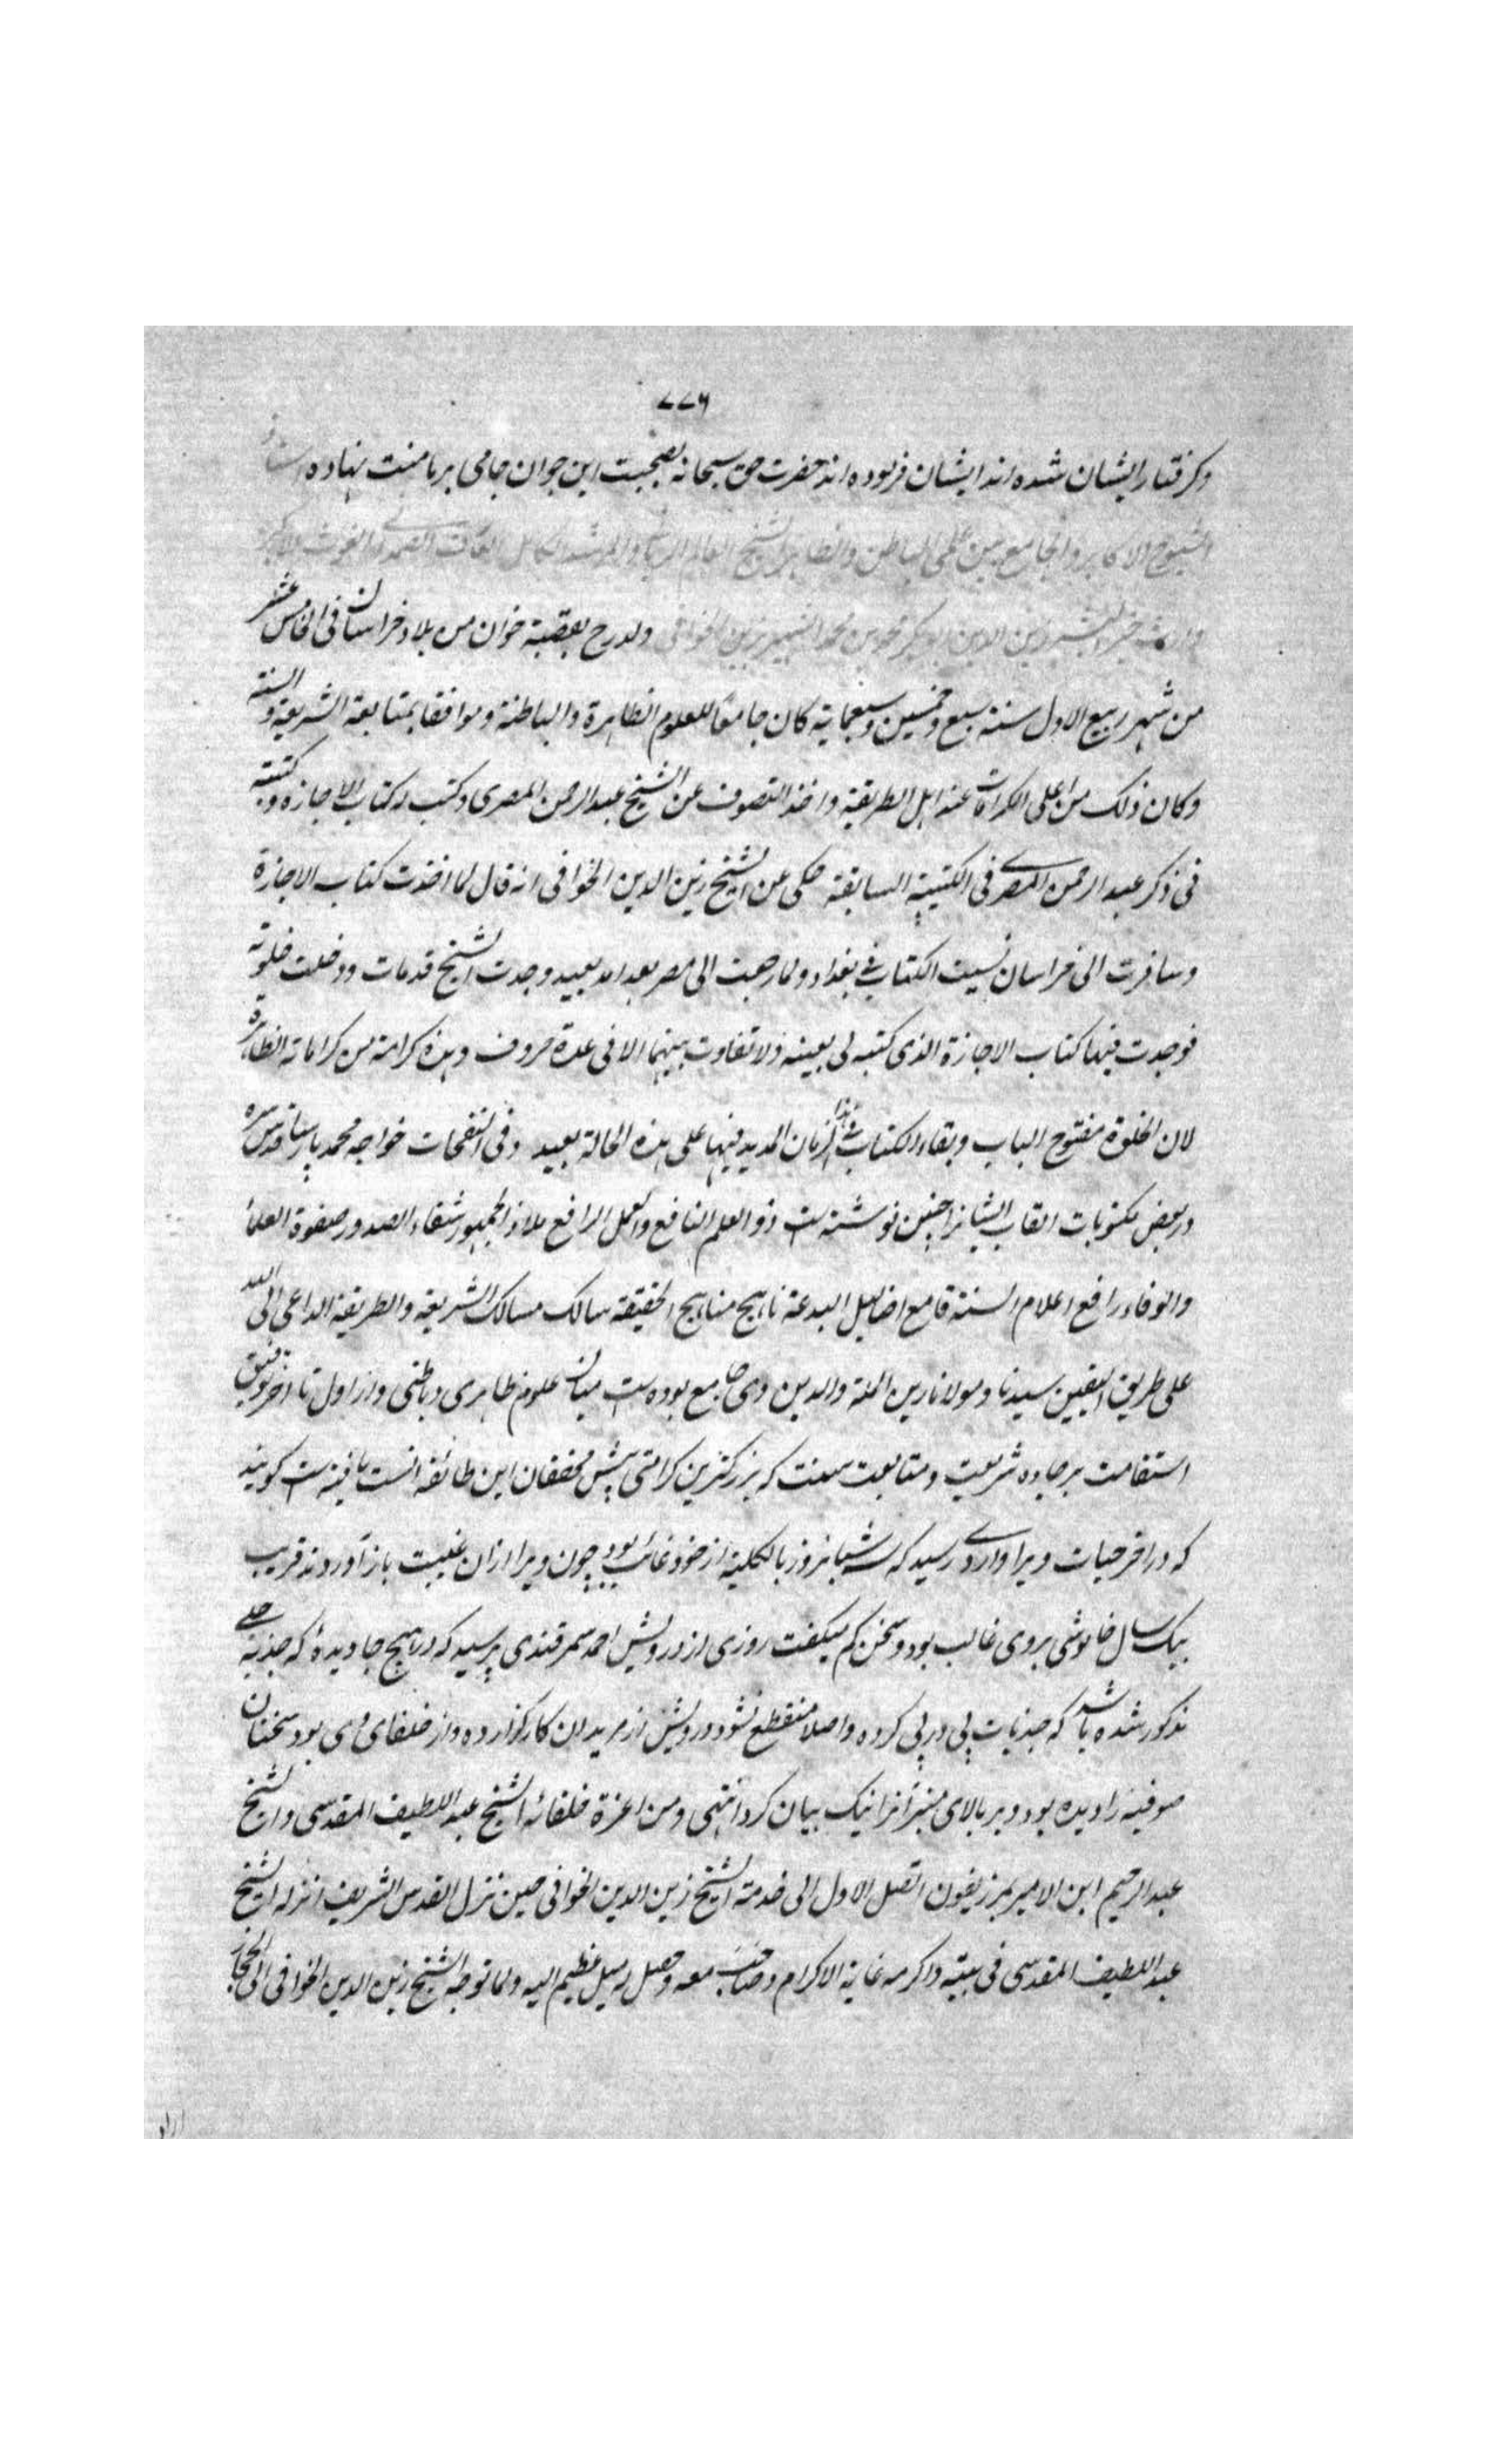 ٧٧٦
وکرفتار ایشان شده اند ایشان فرموده اند حضرت حق سبحانه بصحبت این جوان جامی بر ما منت نهاده
الشیوخ الاکابر والجامع بین علمی الباطن والظاهر الشیخ العالم الربانی والمرشد الکامل العارف الصمدانی الغوث
زین الدین ابو بکر محمد بن محمد الشهیر بزین الخوافی ولد رح بقصبة خوان من بلاد خراسان فی الخامس عشر
من شهر ربیع الاول سنة سبع وخمسین وسبعمایة کان جامعا للعلوم الظاهرة والباطنة وموافقا بمتابعة الشریعة والسنة
وکان ذلک من اعلی الکرامات عند اهل الطریقة واخذ التصوف عن الشیخ عبد الرحمن المصری وکتب له کتاب الاجازه وکتبته
فی ذکر عبد الرحمن المصری فی الکتیبة السابقة حکی عن الشیخ زین الدین الخوافی انه قال لما اخذت کتاب الاجازة
وسافرت الی خراسان نسیت الکتاب فی بغداد ولما رجعت الی مصر بعد امد بعید وجدت الشیخ قد مات ودخلت خلوته
فوجدت فیها کتاب الاجازة الذی کتبه لی بعینه ولا تفاوت بینهما الا فی عدة حروف وهذه کرامة من کراماته الظاهرة
لان الخلوة مفتوح الباب وبقاء الکتاب فی هذا الزمان المدید فیها علی هذه الحالة بعید وفی النفحات خواجه محمد پارسا قدس سره
در بعض مکتوبات القاب ایشانرا چنین نوشته است ذو العلم النافع والعمل الرافع ملاذ الجمهور شفاء الصدور صفوة العلماء
والوفاء رافع اعلام السنة قامع اضالیل البدعة ناهج مناهج الحقیقة سالک مسالک الشریعة والطریقة الداعی الی الله
علی طریق الیقین سیدنا ومولانا زین الملة والدین وی جامع بوده است میان علوم ظاهری وباطنی واز اول تا آخر توفیق
استقامت بر جاده شریعت ومتابعت سنت که بزرکترین کرامتی پیش محققان این طائفه انست یافته است کویند
که در اخر حیات ویرا واردی رسید که سه شبانروز بالکلیة از خود غائب بود چون ویرا ازان غیبت باز آوردند قریب
یک سال خاموشی بروی غالب بود وسخن کم میکفت روزی از درویش احمد سمرقندی پرسید که در هیچ جا دیدهٔ که جذبهٔ
مذکور شده باشد که جذبات پی در پی کرده واصلا منقطع نشود درویش از مریدان کارکزارده واز خلفای وی بود سخنان
صوفیه را دیده بود وبر بالای منبر آنرا نیک بیان کرد انتهی ومن اعزة خلفائه الشیخ عبد اللطیف المقدسی والشیخ
عبد الرحیم ابن الامیر بمرزیفون اتصل الاول الی خدمة الشیخ زین الدین الخوافی حین نزل القدس الشریف انزله الشیخ
عبد اللطیف المقدسی فی بیته واکرمه غایة الاکرام وصاحب معه وحصل له میل عظیم الیه ولما توجه الشیخ زین الدین الخوافی الی الحجاز
اراد